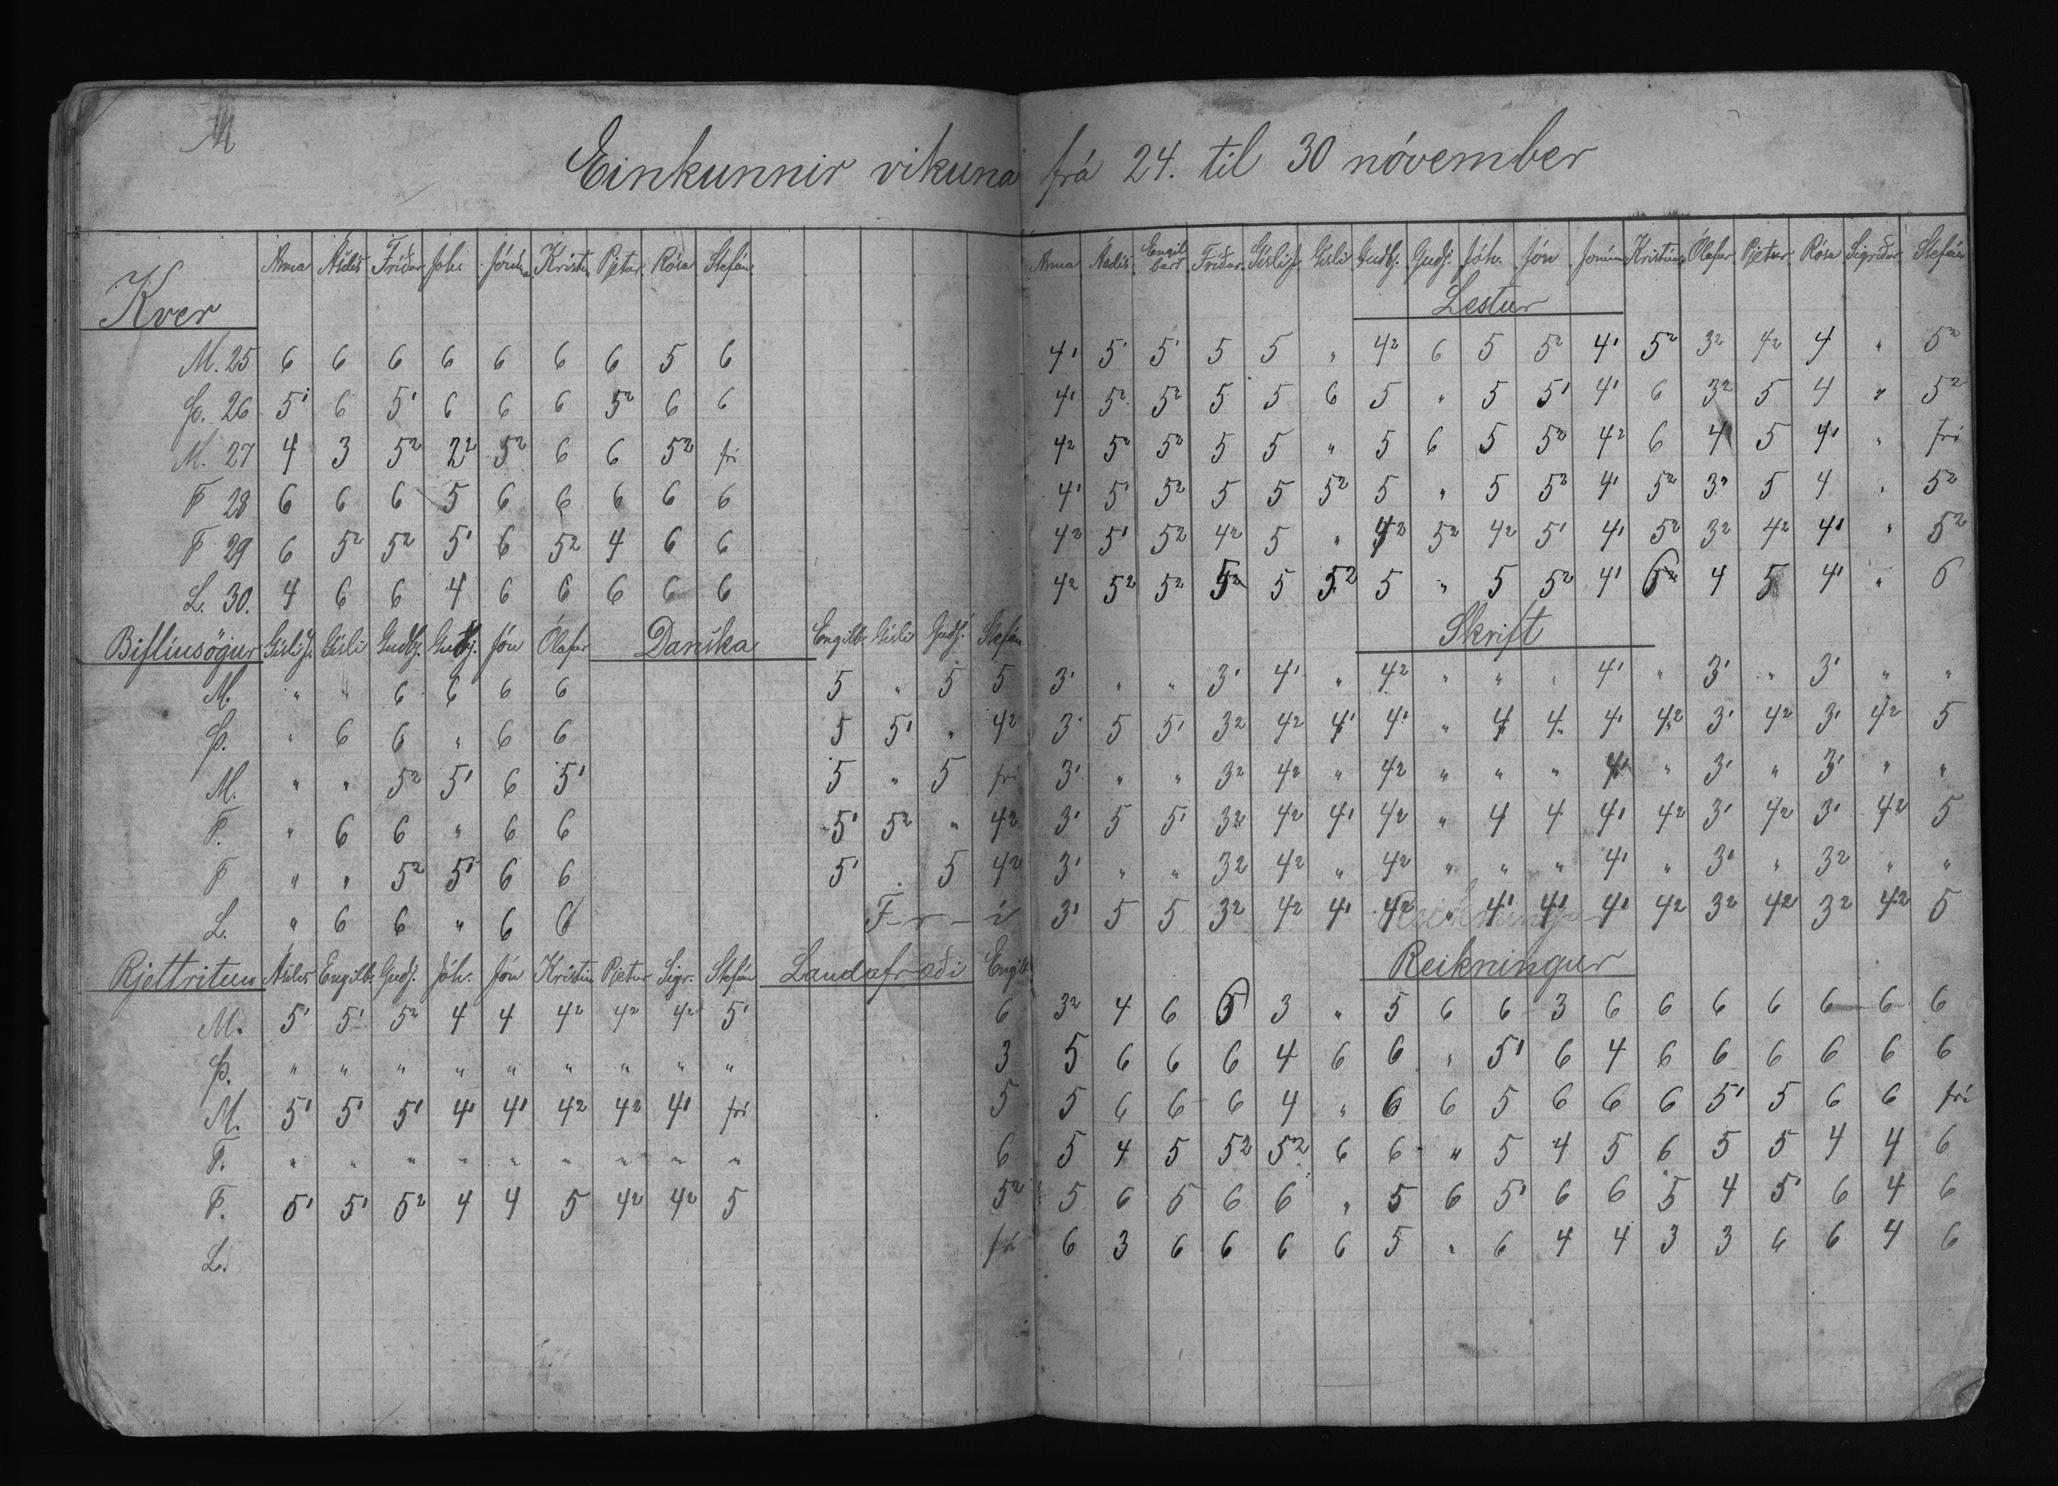 M
Einkunnir vikuna frá 24. til 30 nóvember
Anna Ásdís Fríður Jóh. Jónína Kristín Pjetur Rósa Stefán
Kver
M. 25 6 6 6 6 6 6 6 5 6
Þ. 26 5¹ 6 5¹ 6 6 6 5² 6 6
M. 27 4 3 5² 2² 5² 6 6 5² frí
F 28 6 6 6 5 6 6 6 6 6
F 29 6 5² 5² 5¹ 6 5² 4 6 6
L. 30. 4 6 6 4 6 6 6 6 6
Biflíusögur Gísli J. Gísli Guðbj. Guðj. Jón Ólafur Danska Engilb. Gísli Guðj. Stefán
M. " " 6 6 6 6 5 " 5 5
Þ. " 6 6 " 6 6 5 5¹ " 4²
M. " " 5² 5¹ 6 5¹ 5 " 5 frí
F. " 6 6 " 6 6 5¹ 5² " 4²
F " " 5² 5¹ 6 6 5¹ . 5 4²
L. " 6 6 " 6 6 F - r - í
Rjettritun Ásdís Engilb. Guðj. Jóh. Jón Kristín Pjetur Sigr. Stefán Landafræði Engilb.
M. 5¹ 5¹ 5² 4 4 4² 4² 4² 5¹ 6
Þ. " " " " " " " " " 3
M. 5¹ 5¹ 5¹ 4¹ 4¹ 4² 4² 4¹ frí 5
F. " " " " " " " " " 6
F. 5¹ 5¹ 5² 4 4 5 4² 4² 5 5²
L. frí
Anna Ásdís Engilbert Fríður Gísli J. Gísli Guðbj. Guðj. Jóh. Jón Jónína Kristín Ólafur Pjetur Rósa Sigríður Stefán
Lestur
4¹ 5¹ 5¹ 5 5 " 4² 6 5 5² 4¹ 5² 3² 4² 4 " 5²
4¹ 5² 5² 5 5 6 5 " 5 5¹ 4¹ 6 3² 5 4 " 5²
4² 5² 5² 5 5 " 5 6 5 5² 4² 6 4 5 4¹ " frí
4¹ 5¹ 5² 5 5 5² 5 " 5 5² 4¹ 5² 3² 5 4 " 5²
4² 5¹ 5² 4² 5 " 4² 5² 4² 5¹ 4¹ 5² 3² 4² 4¹ " 5²
4² 5² 5² 5² 5 5² 5 " 5 5² 4¹ 6 4 5 4¹ " 6
Skrift
3¹ " " 3¹ 4¹ " 4² " " " 4¹ " 3¹ " 3¹ " "
3¹ 5 5¹ 3² 4² 4¹ 4¹ " 4 4 4¹ 4² 3¹ 4² 3¹ 4² 5
3¹ " " 3² 4² " 4² " " " 4¹ " 3¹ " 3¹ " "
3¹ 5 5¹ 3² 4² 4¹ 4² " 4 4 4¹ 4² 3¹ 4² 3¹ 4² 5
3¹ " " 3² 4² " 4² " " " 4¹ " 3¹ " 3² " "
3¹ 5 5 3² 4² 4¹ 4² " 4¹ 4¹ 4¹ 4² 3² 4² 3² 4² 5
Reikningur
3² 4 6 5 3 " 5 6 6 3 6 6 6 6 6 6 6
5 6 6 6 4 6 6 " 5¹ 6 4 6 6 6 6 6 6
5 6 6 6 4 " 6 6 5 6 6 6 5¹ 5 6 6 frí
5 4 5 5² 5² 6 6 " 5 4 5 6 5 5 4 4 6
5 6 5 6 6 " 5 6 5¹ 6 6 5 4 5¹ 6 4 6
6 3 6 6 6 6 5 " 6 4 4 3 3 6 6 4 6